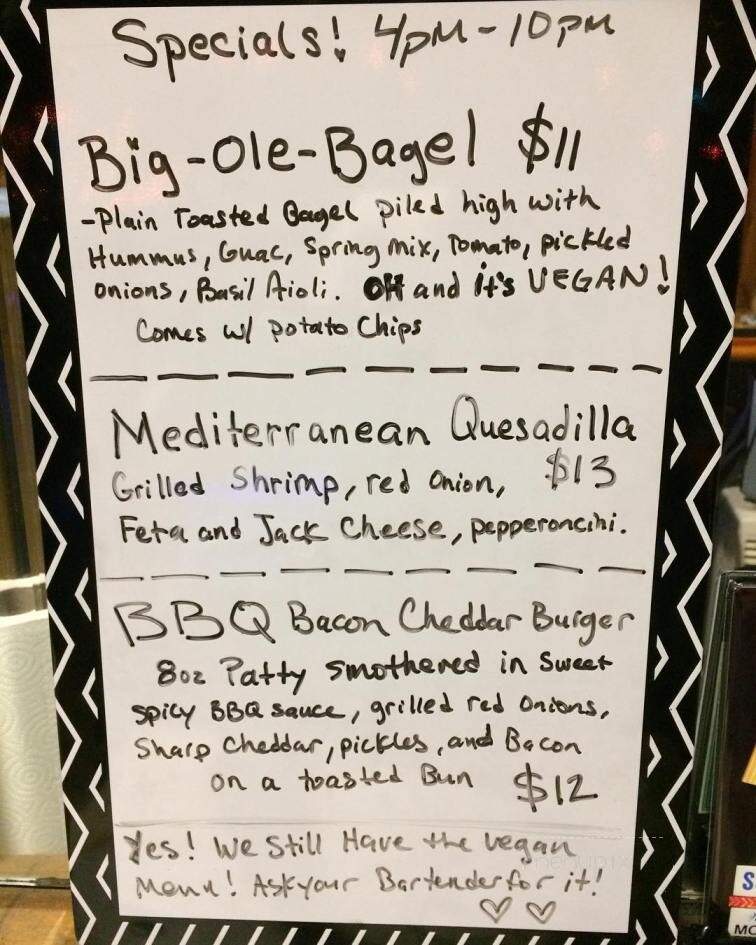 Specials! 4pm-10pm
Big-Ole-Bagel $11
-Plain Toasted Bagel piled high with
Hummus, Guac, Spring mix, Tomato, pickled
onions, Basil Aioli. Oh and it's VEGAN!
Comes w/ potato Chips
Mediterranean Quesadilla
$13
Grilled Shrimp, red onion,
Feta and Jack Cheese, pepperoncini.
BBQ Bacon Cheddar Burger
8oz Patty smothered in Sweet
spicy BBQ sauce, grilled red onions,
Sharp Cheddar, pickles, and Bacon
on a toasted Bun $12
Yes! We Still Have the vegan
Menu! Ask your Bartender for it!